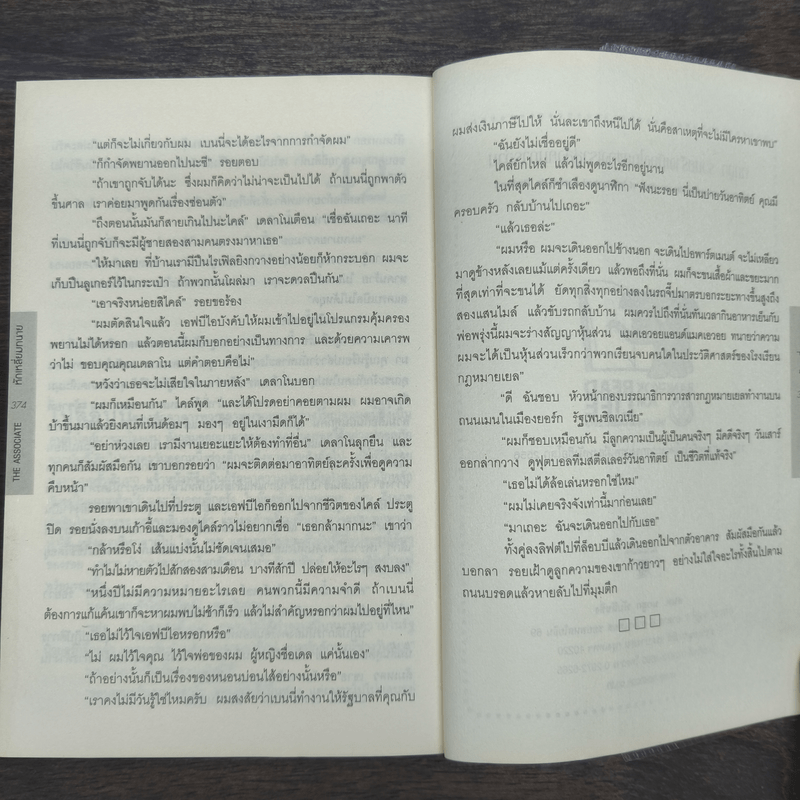 "แต่ก็จะไม่เกี่ยวกับผม เบนนี่จะได้อะไรจากการกำจัดผม"
"ก็กำจัดพยานออกไปนะซี" รอยตอบ
"ถ้าเขาถูกจับได้นะ ซึ่งผมก็คิดว่าไม่น่าจะเป็นไปได้ ถ้าเบนนี่ถูกพาตัว
ขึ้นศาล เราค่อยมาพูดกันเรื่องซ่อนตัว"
"ถึงตอนนั้นมันก็สายเกินไปนะไคล์" เดลาโนเตือน "เชื่อฉันเถอะ นาที
ที่เบนนี่ถูกจับก็จะมีผู้ชายสองสามคนตรงมาหาเธอ"
"ให้มาเลย ที่บ้านเรามีปืนไรเฟิลยิงกวางอย่างน้อยก็ห้ากระบอก ผมจะ
เก็บปืนลูเกอร์ไว้ในกระเป๋า ถ้าพวกนั้นโผล่มา เราจะดวลปืนกัน"
"เอาจริงหน่อยสิไคล์" รอยขอร้อง
"ผมตัดสินใจแล้ว เอฟบีไอบังคับให้ผมเข้าไปอยู่ในโปรแกรมคุ้มครอง
พยานไม่ได้หรอก แล้วตอนนี้ผมก็บอกอย่างเป็นทางการ และด้วยความเคารพ
ว่าไม่ ขอบคุณคุณเดลาโน แต่คำตอบคือไม่"
"หวังว่าเธอจะไม่เสียใจในภายหลัง" เดลาโนบอก
"ผมก็เหมือนกัน" ไคล์พูด "และได้โปรดอย่าคอยตามผม ผมอาจเกิด
บ้าขึ้นมาแล้วยิงคนที่เห็นด้อมๆ มองๆ อยู่ในเงามืดก็ได้"
"อย่าห่วงเลย เรามีงานเยอะแยะให้ต้องทำที่อื่น" เดลาโนลุกยืน และ
ทุกคนก็สัมผัสมือกัน เขาบอกรอยว่า "ผมจะติดต่อมาอาทิตย์ละครั้งเพื่อดูความ
คืบหน้า"
รอยพาเขาเดินไปที่ประตู และเอฟบีไอก็ออกไปจากชีวิตของไคล์ ประตู
ปิด รอยนั่งลงบนเก้าอี้และมองดูไคล์ราวไม่อยากเชื่อ "เธอกล้ามากนะ" เขาว่า
"กล้าหรือโง่ เส้นแบ่งนั้นไม่ชัดเจนเสมอ"
"ทำไมไม่หายตัวไปสักสองสามเดือน บางทีสักปี ปล่อยให้อะไรๆ สงบลง"
"หนึ่งปีไม่มีความหมายอะไรเลย คนพวกนี้มีความจำดี ถ้าเบนนี่
ต้องการแก้แค้นเขาก็จะหาผมพบไม่ช้าก็เร็ว แล้วไม่สำคัญหรอกว่าผมไปอยู่ที่ไหน"
"เธอไม่ไว้ใจเอฟบีไอหรอกหรือ"
"ไม่ ผมไว้ใจคุณ ไว้ใจพ่อของผม ผู้หญิงชื่อเดล แค่นั้นเอง"
"ถ้าอย่างนั้นก็เป็นเรื่องของหนอนบ่อนไส้อย่างนั้นหรือ"
"เราคงไม่มีวันรู้ใช่ไหมครับ ผมสงสัยว่าเบนนี่ทำงานให้รัฐบาลที่คุณกับ
หักเหลี่ยมทนาย
374
THE ASSOCIATE
ผมส่งเงินภาษีไปให้ นั่นละเขาถึงหนีไปได้ นั่นคือสาเหตุที่จะไม่มีใครหาเขาพบ"
"ฉันยังไม่เชื่ออยู่ดี"
ไคล์ยักไหล่ แล้วไม่พูดอะไรอีกอยู่นาน
ในที่สุดไคล์ก็ชำเลืองดูนาฬิกา "ฟังนะรอย นี่เป็นบ่ายวันอาทิตย์ คุณมี
ครอบครัว กลับบ้านไปเถอะ"
"แล้วเธอล่ะ"
"ผมหรือ ผมจะเดินออกไปข้างนอก จะเดินไปอพาร์ตเมนต์ จะไม่เหลียว
มาดูข้างหลังเลยแม้แต่ครั้งเดียว แล้วพอถึงที่นั่น ผมก็จะขนเสื้อผ้าและขยะมาก
ที่สุดเท่าที่จะขนได้ ยัดทุกสิ่งทุกอย่างลงในรถจี๊ปมาตรบอกระยะทางขึ้นสูงถึง
สองแสนไมล์ แล้วขับรถกลับบ้าน ผมควรไปถึงที่นั่นทันเวลากินอาหารเย็นกับ
พ่อพรุ่งนี้ผมจะร่างสัญญาหุ้นส่วน แมคเอวอยแอนด์แมคเอวอย ทนายความ
ผมจะได้เป็นหุ้นส่วนเร็วกว่าพวกเรียนจบคนใดในประวัติศาสตร์ของโรงเรียน
กฎหมายเยล"
"ดี ฉันชอบ หัวหน้ากองบรรณาธิการวารสารกฎหมายเยลทำงานบน
ถนนเมนในเมืองยอร์ก รัฐเพนซิลเวเนีย"
"ผมก็ชอบเหมือนกัน มีลูกความเป็นผู้เป็นคนจริงๆ มีคดีจริงๆ วันเสาร์
ออกล่ากวาง ดูฟุตบอลทีมสตีลเลอร์วันอาทิตย์ เป็นชีวิตที่แท้จริง"
"เธอไม่ได้ล้อเล่นหรอกใช่ไหม"
"ผมไม่เคยจริงจังเท่านี้มาก่อนเลย"
"มาเถอะ ฉันจะเดินออกไปกับเธอ"
ทั้งคู่ลงลิฟต์ไปที่ล็อบบี้แล้วเดินออกไปจากตัวอาคาร สัมผัสมือกันแล้ว
บอกลา รอยเฝ้าดูลูกความของเขาก้าวยาวๆ อย่างไม่ใส่ใจอะไรทั้งสิ้นไปตาม
ถนนบรอดแล้วหายลับไปที่มุมตึก